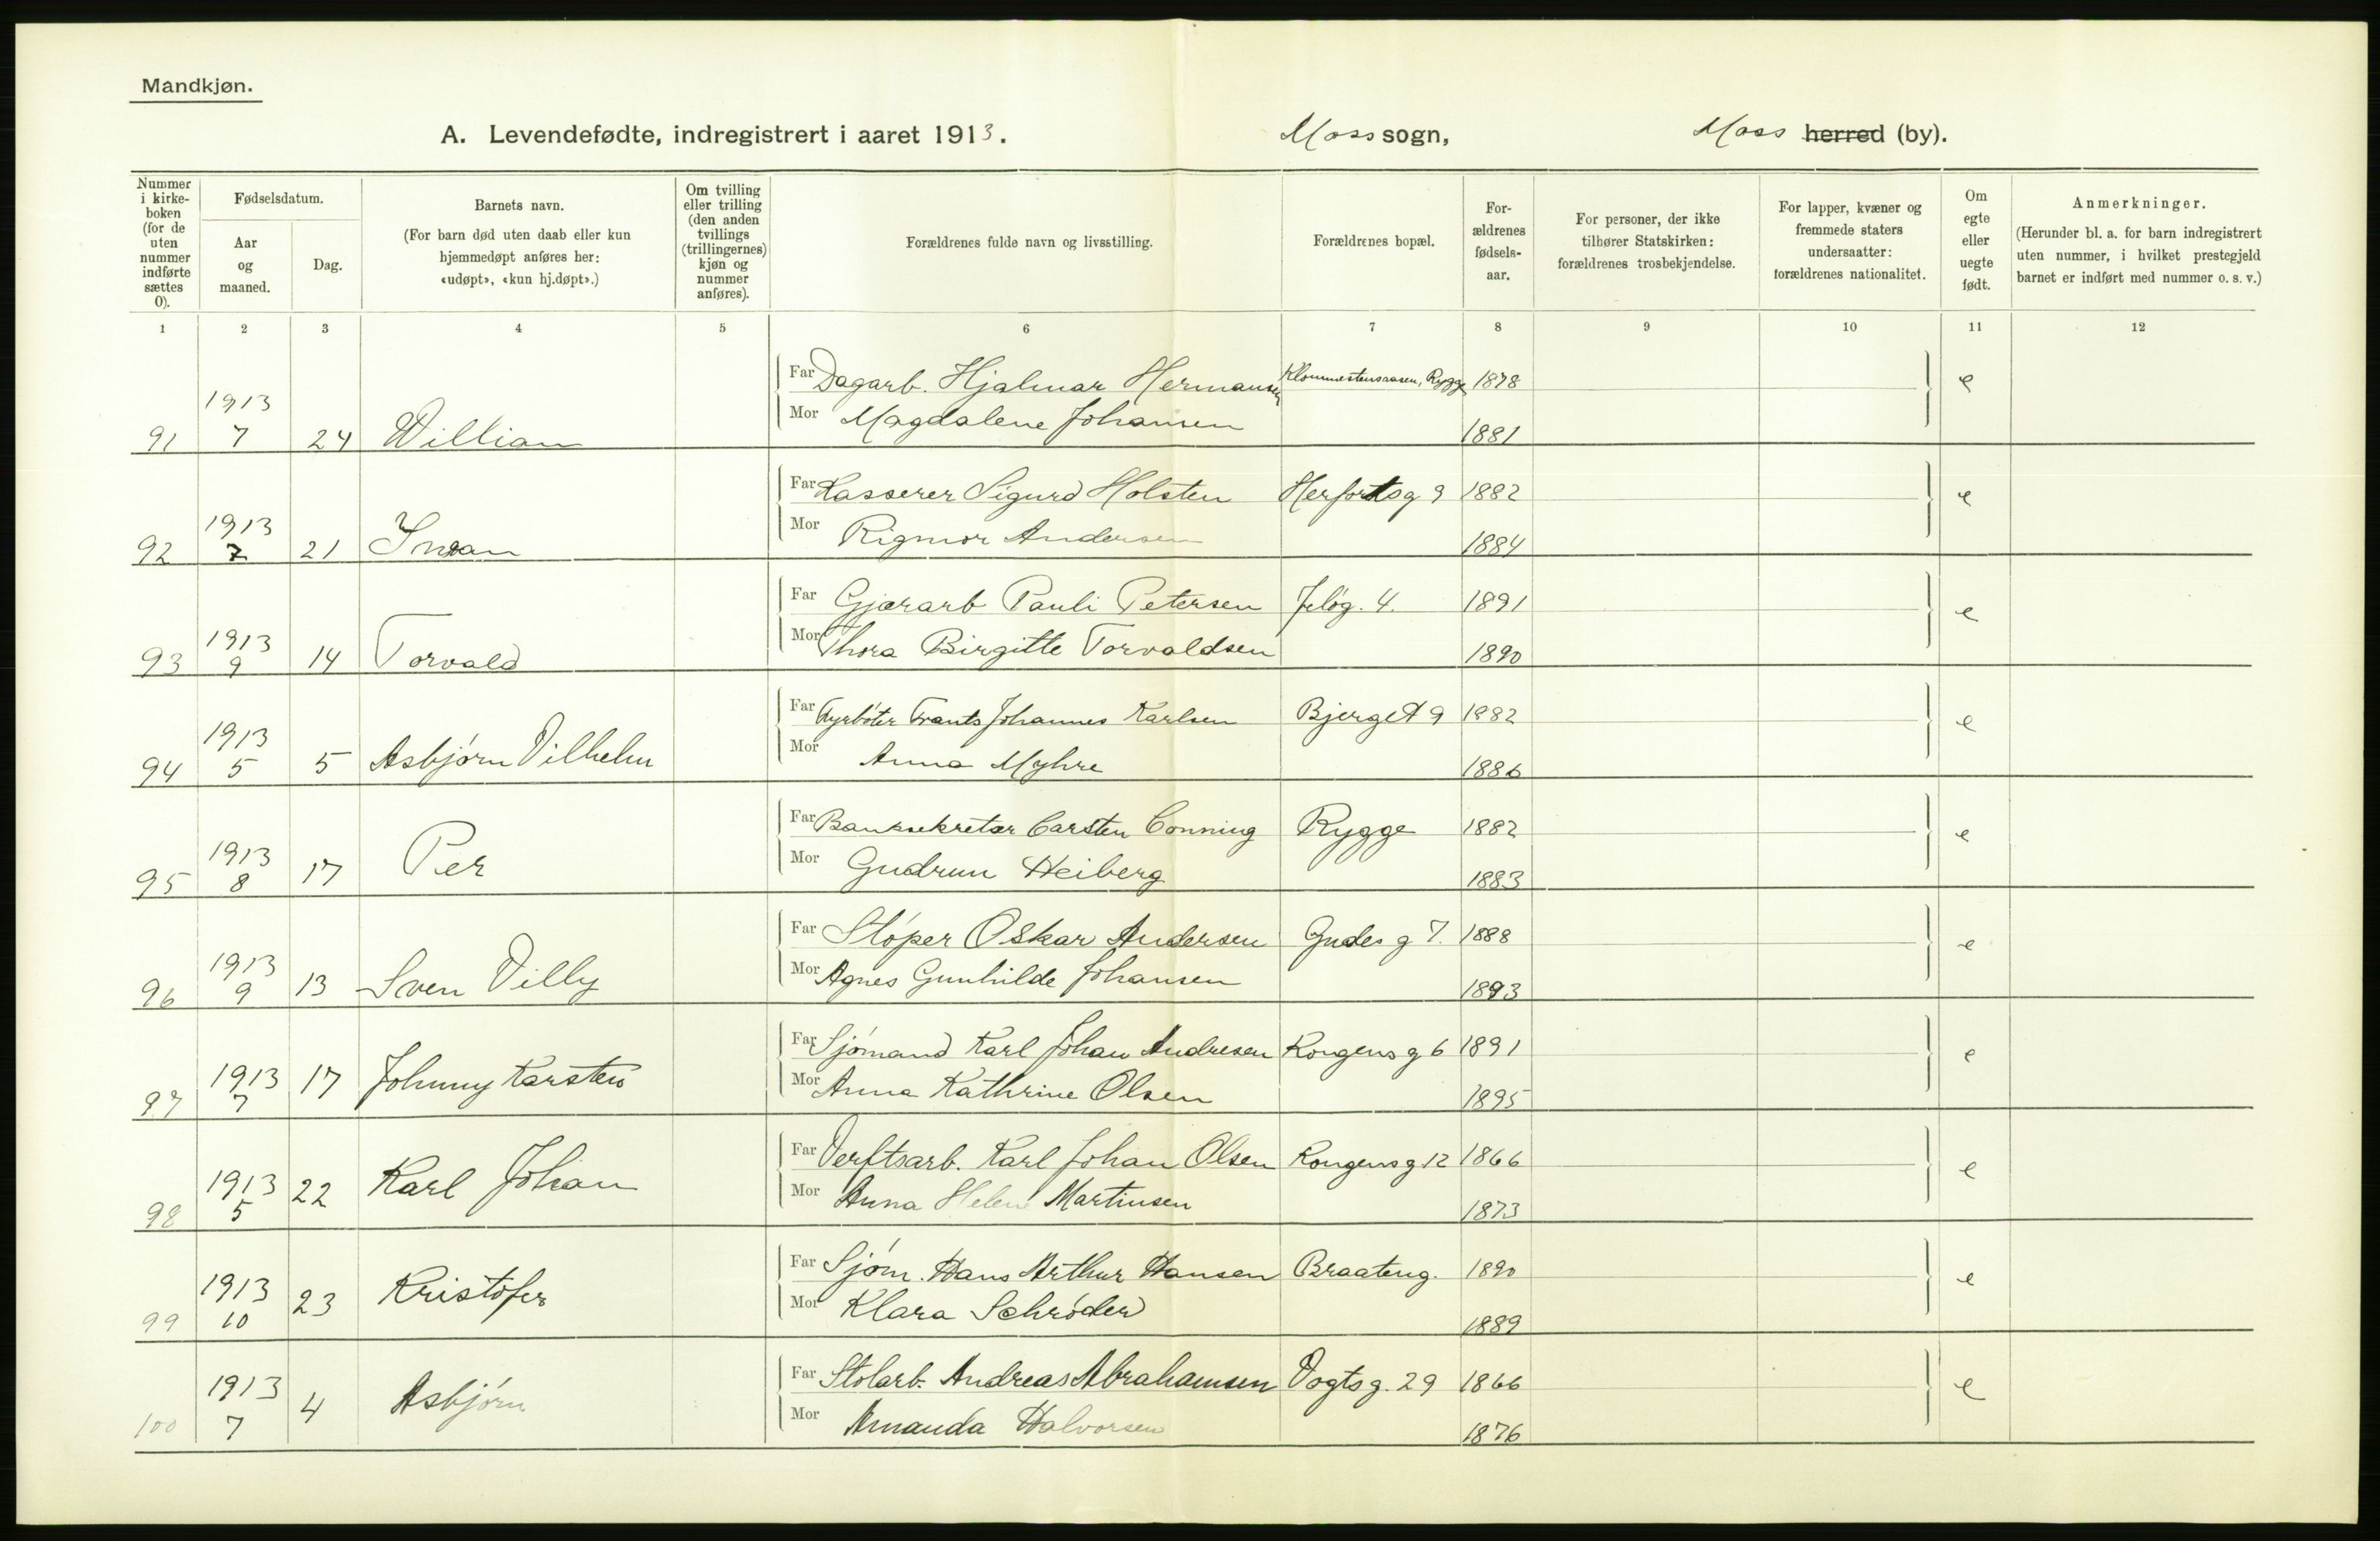 Mandkjøn.
A. Levendefødte, indregistrert i aaret 1913. Moss sogn, Moss herred (by).
Nummer i kirke-boken (for de uten nummer indførte sættes 0).
Fødselsdatum.
Aar og maaned.
Dag.
Barnets navn.
(For barn død uten daab eller kun hjemmedøpt anføres her: «udøpt», «kun hj.døpt».)
Om tvilling eller trilling (den anden tvillings (trillingernes) kjøn og nummer anføres).
Forældrenes fulde navn og livsstilling.
Forældrenes bopæl.
For-ældrenes fødsels-aar.
For personer, der ikke tilhører Statskirken: forældrenes trosbekjendelse.
For lapper, kvæner og fremmede staters undersaatter: forældrenes nationalitet.
Om egte eller uegte født.
Anmerkninger.
(Herunder bl. a. for barn indregistrert uten nummer, i hvilket prestegjeld barnet er indført med nummer o. s. v.)
1 2 3 4 5 6 7 8 9 10 11 12
Far Dagarb. Hjalmar Hermansen Rygge 1878 e
1913
Mor Magdalene Johansen
91 7 24 William 1881
Far Kasserer Sigurd Holsten Herfortsg 9 1882 e
1913
Mor Rigmor Andersen
92 7 21 1884
Far Gjærarb Pauli Petersen Jeløg. 4. 1891 e
1913
Mor Thora Birgitte Torvaldsen
93 9 14 Torvald 1890
Far Fyrbøter Frants Johannes Karlsen Bjerget 9 1882 e
1913
Mor Anna Myhre
94 5 5 Asbjørn Vilhelm 1886
Far Banksekretær Carsten Conning Rygge 1882 e
1913
Mor Gudrun Heiberg
95 8 17 Per 1883
Far Støper Oskar Andersen Gudes g 7. 1888 e
1913
Mor Agnes Gunhilde Johansen
96 9 13 Sven Villy 1893
Far Sjømand Karl Johan Andresen Kongens g 6 1891 e
1913
Mor Anna Kathrine Olsen
97 7 17 Johnny Karsten 1895
Far Verftsarb. Karl Johan Olsen Kongens g 12 1866 e
1913
Mor Anna Helene Martinsen
98 5 22 Karl Johan 1873
Far Sjøm. Hans Arthur Hansen Braateng. 1890 e
1913
Mor Klara Schrøder
99 10 23 Kristofer 1889
Far Stolarb. Andreas Abrahamsen Vogtsg. 29 1866 e
1913
Mor Amanda Halvorsen
100 7 4 Asbjørn 1876